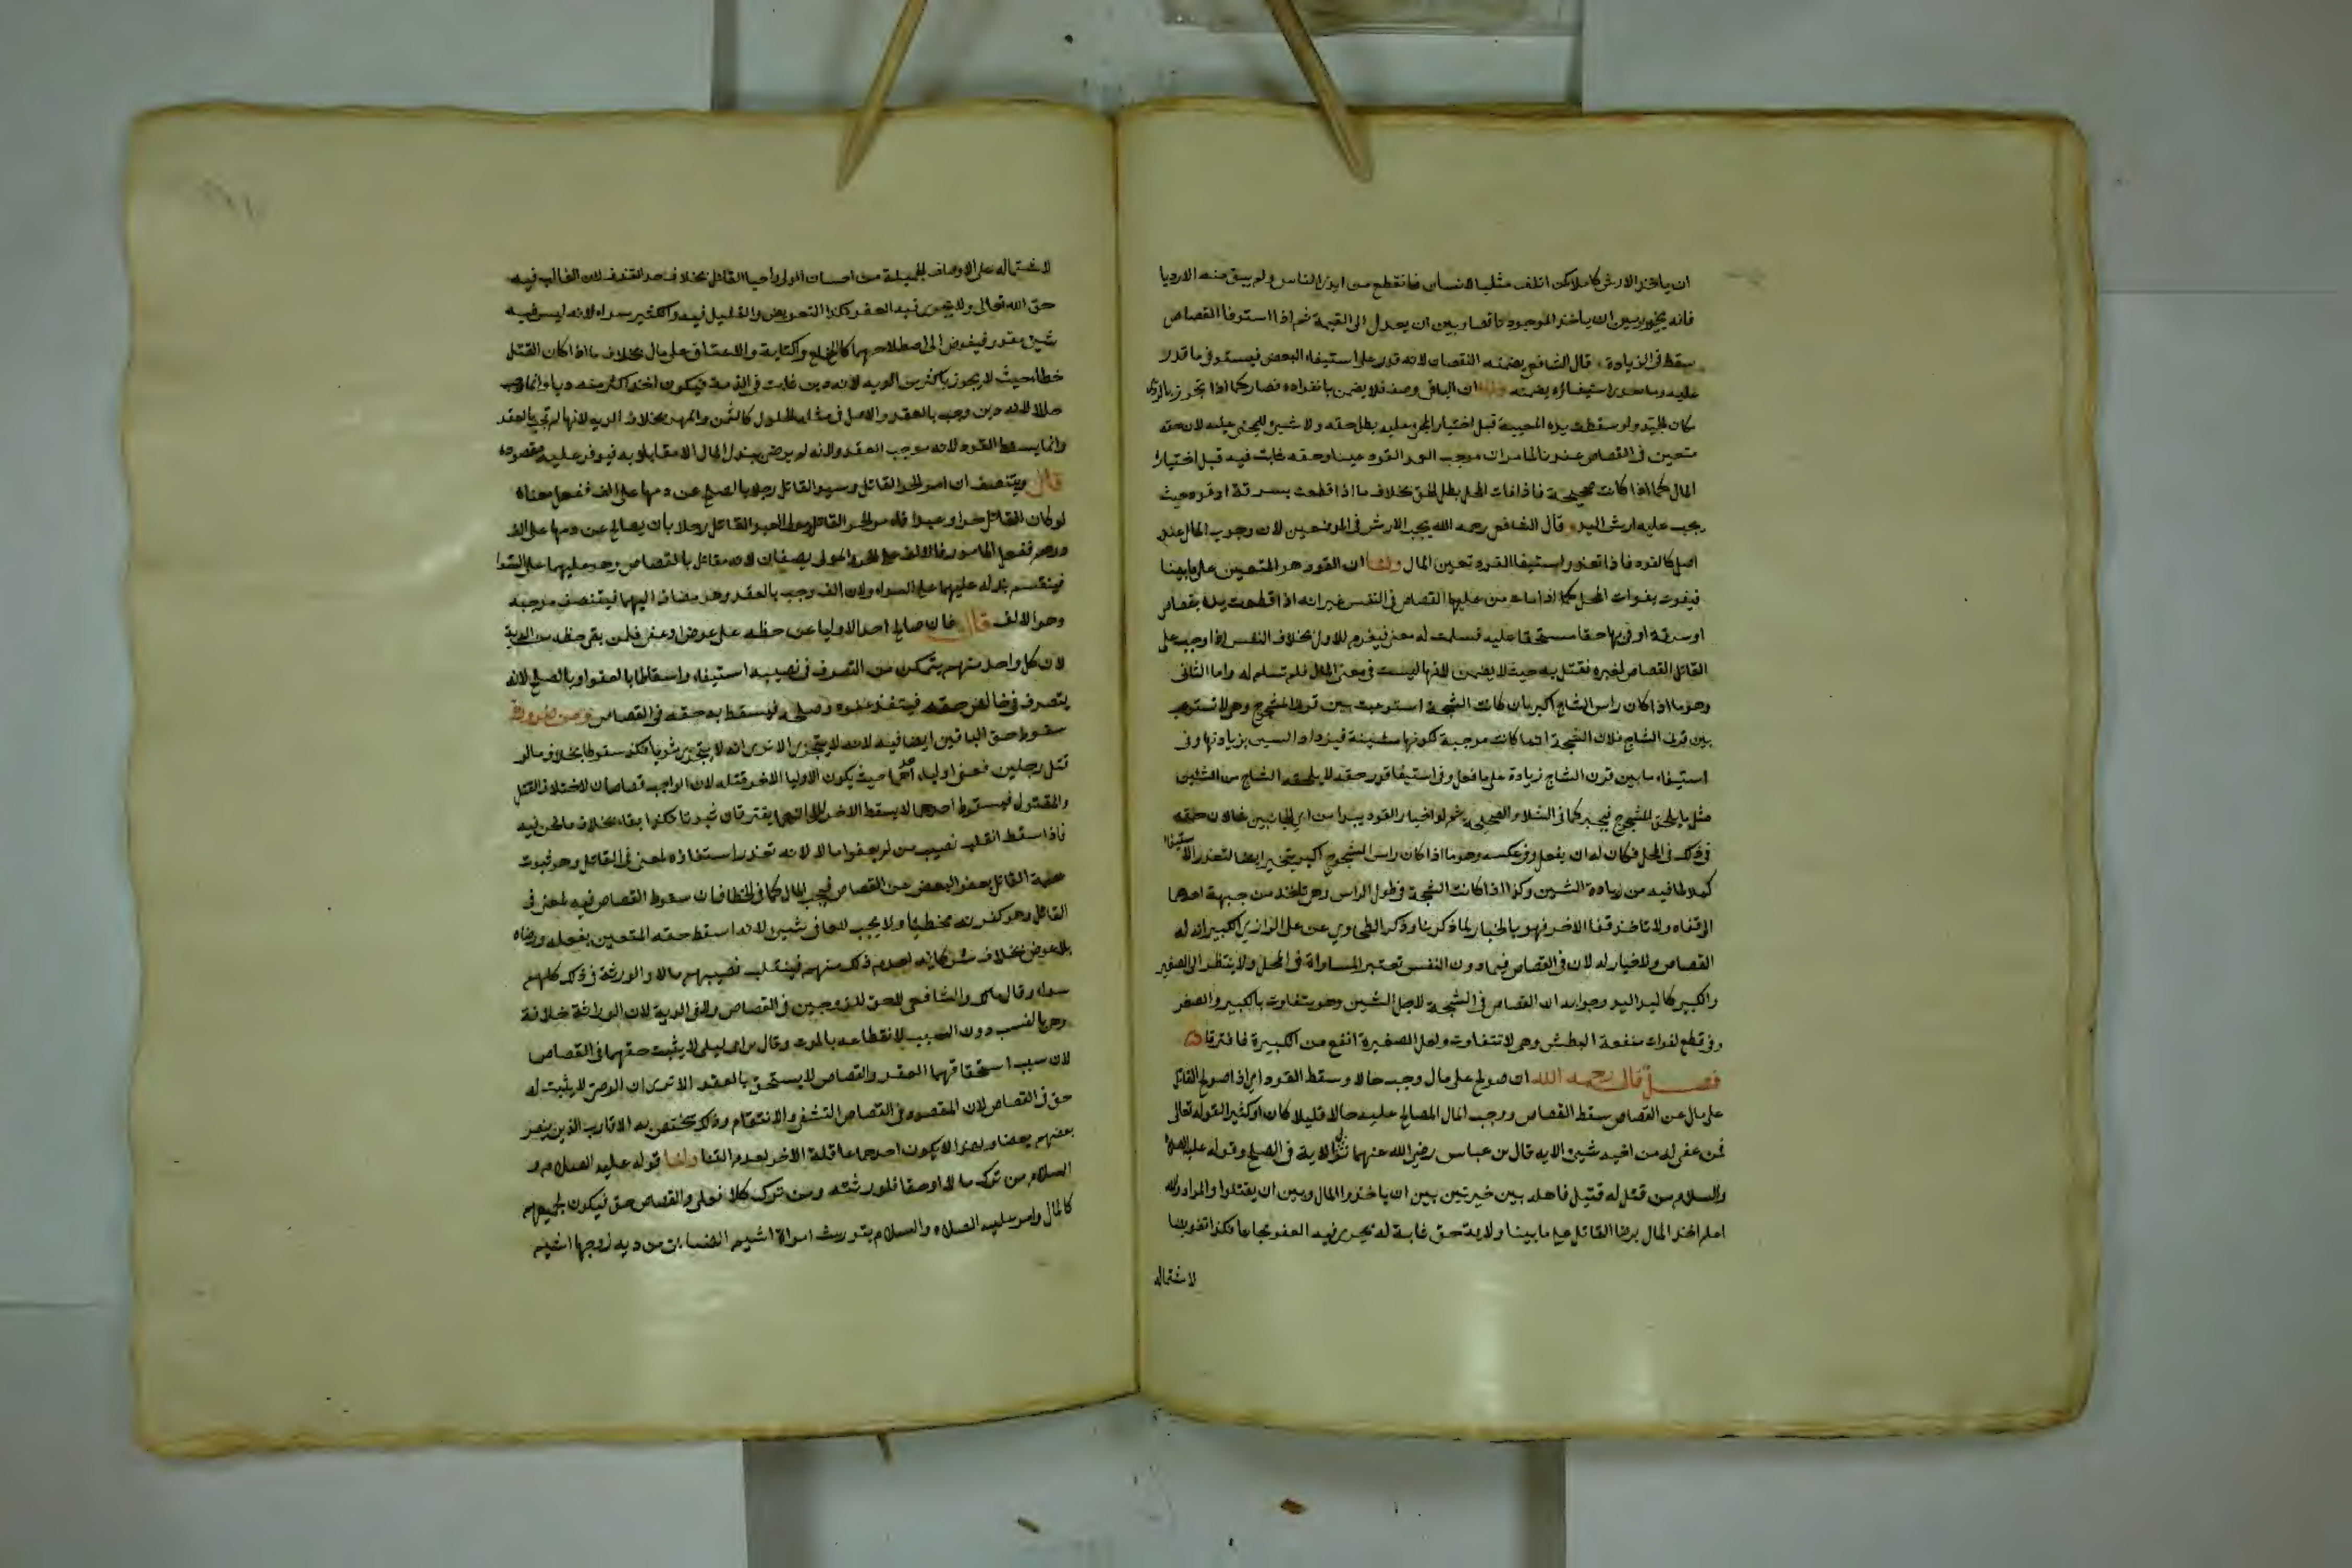 ان ياخذ الارش كاملا كمن اتلف مثليا لانسان فانقطع من ايدي الناس ولم يبق منه الا رديا
فانه يخير بين ان ياخذ الموجود ناقصا وبين ان يعدل الى القيمة ثم اذا استوفا القصاص
سقط في الزيادة قال الشافعي يضمنه النقصان لانه قدر على استيفاء البعض فيستوفي ما قدر
عليه وما تعذر استيفاؤه يضمنه ولنا ان الباقي وصف فلا يضمن بانفراده فصار كما اذا تجوز بالردي
مكان الجيد ولو سقطت يده المعيبة قبل اختيار المجني عليه بطل حقه ولا شيئ للمجني عليه لان حقه
متعين في القصاص عندنا لما مر ان موجب العمد القود عينا وحقه ثابت فيه قبل اختياره
المال كما اذا كانت صحيحة فاذا فات المحل بطل الحق بخلاف ما اذا قطعت بسرقة او قود حيث
يجب عليه ارش اليد قال الشافعي رحمه الله يجب الارش في الموضعين لان وجوب المال عنده
اصل كالقود فاذا تعذر استيفا القود تعين المال ولنا ان القود هو المتعين على ما بينا
فيفوت بفوات المحل كما اذا مات من عليه القصاص في النفس غير انه اذا قطعت يده بقصاص
او سرقة او في بها حقا مستحقا عليه فسلمت له معنى فيغرم للاول بخلاف النفس اذا وجب على
القاتل القصاص لغيره فقتل به حيث لا يضمن لانها ليست في معنى المال فلم تسلم له واما الثاني
وهو ما اذا كان راس الشاج اكبر بان كانت الشجة استوعبت بين قرني المشجوج وهي لا تستوعب
بين قرني الشاج فلان الشجة انما كانت موجبة لكونها مشينة فيزداد الشين بزيادتها وفي
استيفاء ما بين قرن الشاج زيادة على ما فعل وفي استيفا قدر حقه لا يلحقه الشاج من الشين
مثل ما يلحق المشجوج فيخير كما في الشلاء والصحيحة ثم لو اختار القود يبدا من اي الجانبين شا لان حقه
في ذلك في المحل فكان له ان يفعل وفي عكسه وهو ما اذا كان راس المشجوج اكبر يتخير ايضا لتعذر الاستيفا
كملا لما فيه من زيادة الشين وكذا اذا كانت الشجة في طول الراس وهي تاخذ من جبهة احدهما
الى قفاه ولا تاخذ قفا الاخر فهو بالخيار لما ذكرنا وذكر الطحاوي عن علي الرازي الكبير انه له
القصاص ولا خيار له لان في القصاص فيما دون النفس تعتبر المساواة في المحل ولا ينظر الى الصغير
والكبير كاليد اليد وجوابه ان القصاص في الشجة لاجل الشين وهو يتفاوت بالكبير والصغر
وفي قطع لفوات منفعة البطش وهي لا تتفاوت ولعل الصغيرة انفع من الكبيرة فافترقا
فصل قال رحمه الله ان صولح على مال وجب حالا وسقط القود اي اذا صولح القاتل
على مال عن القصاص سقط القصاص ووجب المال المصالح عليه حالا قليلا كان او كثيرا لقوله تعالى
فمن عفي له من اخيه شيئ الاية قال بن عباس رضي الله عنهما نزل الاية في الصلح وقوله عليه الصلاة
والسلام من قتل له قتيل فاهله بين خيرتين بين ان ياخذوا المال وبين ان يقتلوا والمراد والله
اعلم اخذ المال برضا القاتل على ما بينا ولا يد حق ثابة له يجري فيه العفو مجانا فكذا تعويضا
لاشتماله
لاشتماله على الاوصاف الجميلة من احسان الولي واحيا القاتل بخلاف حد القذف لان الغالب فيه
حق الله تعالى ولا يجري فيه العفو فكذا التعويض والقليل فيه والكثير سواء لانه ليس فيه
شيئ مقدر فيفوض الى اصطلاحهما كالخلع والكتابة والاعتاق على مال بخلاف ما اذا كان القتل
خطا حيث لا يجوز باكثر من الديه لانه دين ثابت في الذمة فيكون اخذ اكثر منه ربا وانما وجب
حالا لانه دين وجب بالعقد والاصل في مثله الحلول كالثمن والمهر بخلاف الديه لانها لم تجب بالعقد
وانما يسقط القود لانه موجب العقد ولانه لم يرض ببذل المال الا مقابلا به فيوفر عليه مقصوده
قال ويتنصف ان امر الحر القاتل وسيد القاتل رجلا بالصلح عن دمها على الف ففعل معناه
لو كان القاتل حرا وعبدا فامر الحر القاتل ومولى العبد القاتل رجلا بان يصالح عن دمها على الف
درهم ففعل المامور فالالف على الحر والمولى نصفان لانه مقابل بالقصاص وهو عليهما على السوا
فينقسم بدله عليهما على السواء ولان الف وجب بالعقد وهو مضاف اليهما فيتنصف موجبه
وهو الالف قال فان صالح احد الاوليا عن حظه على عوض او عفى فلمن بقي حظه من الدية
لان كل واحد منهم يتمكن من التصرف في نصيبه استيفاء واسقاطا بالعفو او بالصلح لانه
يتصرف في خالص حقه فينفذ عفوه وصلحه فيسقط به حقه في القصاص ومن ضرورة
سقوط حق الباقين ايضا فيه لانه لا يتجزي الا ترى انه لا يتجزي ثبوتا فكذا سقوطا بخلاف ما لو
قتل رجلين فعفى اوليا احدهما حيث يكون لاوليا الاخر قتله لان الواجب قصاصان لاختلاف القتل
والمقتول فبسقوط احدهما لا يسقط الاخر يفترقان ثبوتا فكذا بقاء بخلاف ما نحن فيه
فاذا سقط انقلب نصيب من لم يعفو مالا لانه تعذر استفاؤه لمعنى في القاتل وهو ثبوت
عصمة القاتل بعفو البعض عن القصاص فيجب المال كما في الخطا فان سقوط القصاص فيه لمعنى في
القاتل وهو كونه مخطيا ولا يجب للعافي شيئ لانه اسقط حقه المتعين بفعله ورضاه
بلا عوض بخلاف شركايه لعدم ذلك منهم فينقلب نصيبهم مالا والورثة في ذلك كلهم
سواء وقال مالك والشافعي لا حق للزوجين في القصاص ولا في الدية لان الوراثة خلافة
وهي بالنسب دون السبب لانقطاعه بالموت وقال بن ابي ليلى لا يثبت حقهما في القصاص
لان سبب استحقاقهما العقد والقصاص لا يستحق بالعقد الا ترى ان الوصي لا يثبت له
حق في القصاص لان المقصود في القصاص التشفي والانتقام وذلك يختص به الاقارب الذين ينصر
بعضهم بعضا ولهذا لا يكون احدهما عاقلة الاخر لعدم التنا ولنا قوله عليه الصلاة و
السلام من ترك مالا او حقا فلورثته ومن ترك كلا فعلي والقصاص حق فيكون لجميعهم
كالمال وامر عليه الصلاه والسلام بتوريث امراة اشيم الضبابي من دية زوجها اشيم